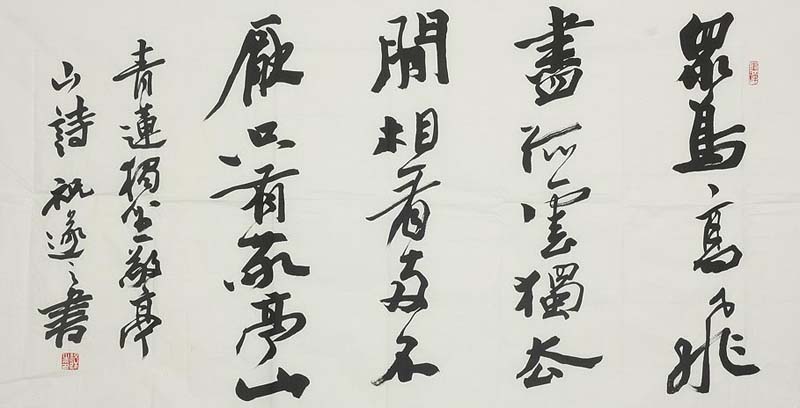 眾鳥高飛
盡孤雲獨去
閒相看兩不
厭只有敬亭山
青蓮獨坐敬亭
山詩祝遂之書